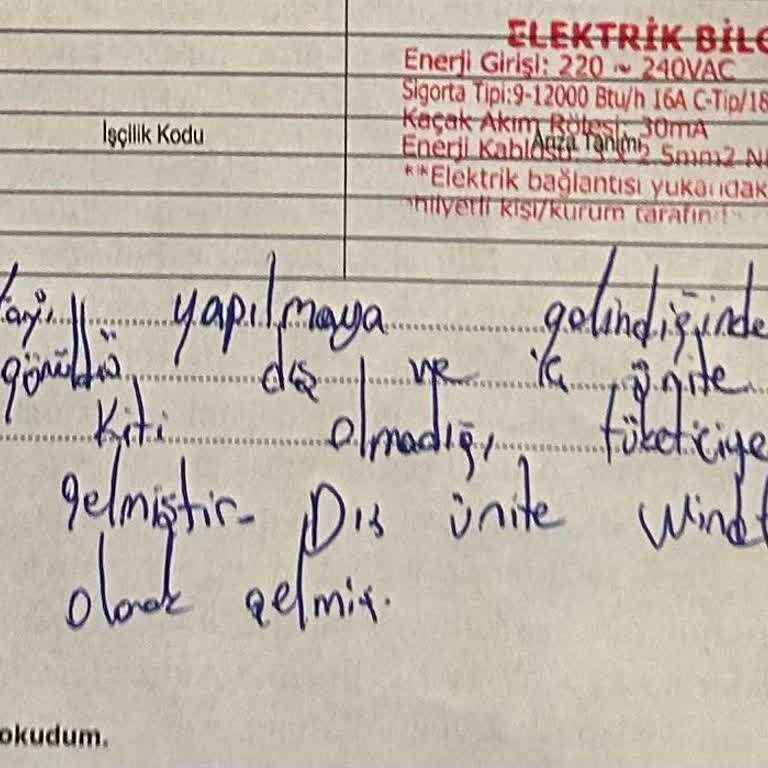 ELEKTRİK BİLG
Enerji Girişi: 220 ~ 240VAC
Sigorta Tipi:9-12000 Btu/h 16A C-Tip/18
Kaçak Akım Rölesi: 30mA
İşçilik Kodu Arıza Tanımı
Enerji Kablosu 2.5mm2 N
**Elektrik bağlantısı yukarıdak
ehliyetli kişi/kurum tarafın
yapılmaya gelindiğinde
görüldü dış ve iç ünite
kiti olmadığı, tüketiciye
gelmiştir- Dış ünite
olarak gelmiş.
okudum.